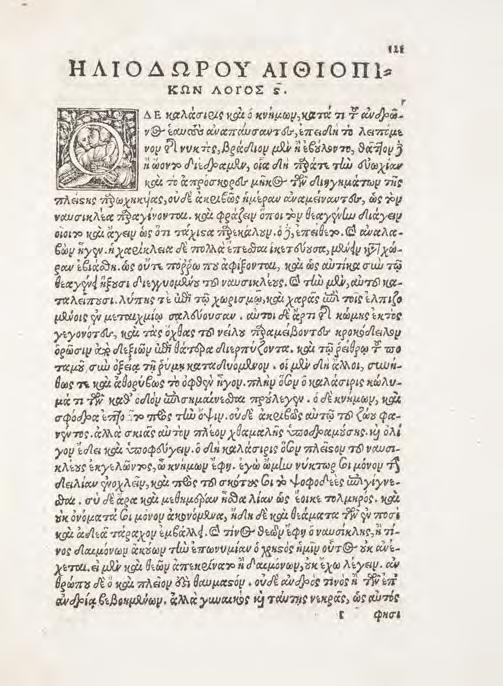 121
ΗΛΙΟΔΩΡΟΥ ΑΙΘΙΟΠΙ-
ΚΩΝ ΛΟΓΟΣ ς.
Ο ΔΕ καλάσιρις καὶ ὁ κνήμων, κατά τι τοῦ ἀνδρῶ-
νος ἑαυτοὺς ἀναπαύσαντες, ἐπειδὴ τὸ λειπόμε
νον τῆς νυκτὸς, βράδιον μὲν ἢ ἐβούλοντο, θᾶττον δὲ
ἢ ᾤοντο διέδραμεν, οἷα δὴ πρός τε τὴν εὐωχίαν
καὶ τὸ ἀπρόσκορον μῆκος τῶν διηγημάτων τῆς
πλείστης προκεχωρηκυίας, οὐδὲ ἀκριβῶς ἡμέραν ἀναμείναντες, ὡς τὸν
ναυσικλέα παραγίνονται. καὶ φράζειν ὅποι τὸν θεαγένην διάγειν
οἴοιτο καὶ ἄγειν ὡς ὅτι τάχιστα παρεκάλουν. ὁ δὲ, ἐπείθετο. καὶ ἀναλα-
βὼν ἦγεν. ἡ χαρίκλεια δὲ πολλὰ ἕπεσθαι ἱκετεύουσα, μένειν κατὰ χώ-
ραν ἐβιάσθη. ὡς οὔτε πόῤῥω που ἀφίξονται, καὶ ὡς αὐτίκα σὺν τῷ
θεαγένει ἥξουσι διεγγυωμένου τοῦ ναυσικλέους. καὶ τὴν μὲν, αὐτοῦ κα-
ταλείπουσι. λύπης τε ἐπὶ τῷ χωρισμῷ, καὶ χαρᾶς ἐπὶ τοῖς ἐλπιζο
μένοις ἐν μεταιχμίῳ σαλεύουσαν. αὐτοὶ δὲ ἄρτι τῆς κώμης ἐκτὸς
γεγονότες, καὶ τὰς ὄχθας τοῦ νείλου παραμείβοντες κροκόδειλον
ὁρῶσιν ἀπὸ δεξιῶν ἐπὶ θάτερα διερπύζοντα. καὶ τῷ ῥείθρῳ τοῦ πο
ταμοῦ σὺν ὀξείᾳ τῇ ῥύμῃ καταδυόμενον. οἱ μὲν δὴ ἄλλοι, συνή-
θως τε καὶ ἀθορύβως τὸ ὀφθὲν ἦγον. πλὴν ὅσον ὁ καλάσιρις κώλυ-
μά τι τῶν καθ' ὁδὸν ἐπισημαίνεσθαι προὔλεγεν. ὁ δὲ κνήμων, καὶ
σφόδρα ἐπῄετο πρὸς τὴν ὄψιν. οὐδὲ ἀκριβῶς αὐτῷ τοῦ ζώου φα-
νέντος. ἀλλὰ σκιᾶς αὐτὸν πλέον χθαμαλῆς ὑποδραμούσης. καὶ ὀλί
γον ἔδει καὶ ὑποφεύγειν. ὁ δὴ καλάσιρις ὅσον πλεῖστον τοῦ ναυσι-
κλέους ἐκγελῶντος, ὦ κνήμων ἔφη. ἐγὼ ᾤμην νύκτωρ σοι μόνον τὴν
δειλίαν ἐνοχλεῖν, καὶ πρὸς τοῦ σκότους σοι τὸ ψοφοδεὲς ἐπιγίγνε-
σθαι. σὺ δὲ ἄρα καὶ μεθημέραν ἦσθα λίαν ὡς ἔοικε τολμηρός. καὶ
οὐκ ὀνόματά σοι μόνον ἀκουόμενα, ἤδη δὲ καὶ θεάματα τῶν ἐν ποσὶ
καὶ ἀδεᾶ τάραχον ἐμβάλλει. καὶ τίνων θεῶν ἔφη ὁ ναυσικλῆς, ἢ τί-
νος δαιμόνων ἀκούων τὴν ἐπωνυμίαν ὁ χρηστὸς ἡμῖν οὗτος οὐκ ἀνέ-
χεται. εἰ μὲν καὶ θεῶν ἀπεκρίνατο ἢ δαιμόνων, οὐκ ἔχω λέγειν. ἀν
θρώπου δὲ ὃ καὶ πλέον ἔτι θαυμαστόν. οὐδὲ ἀνδρός τινος ἢ τῶν ἐπ'
ἀνδρίᾳ βεβοημένων. ἀλλὰ γυναικὸς καὶ ταύτης νεκρᾶς, ὡς αὐτός
φησι